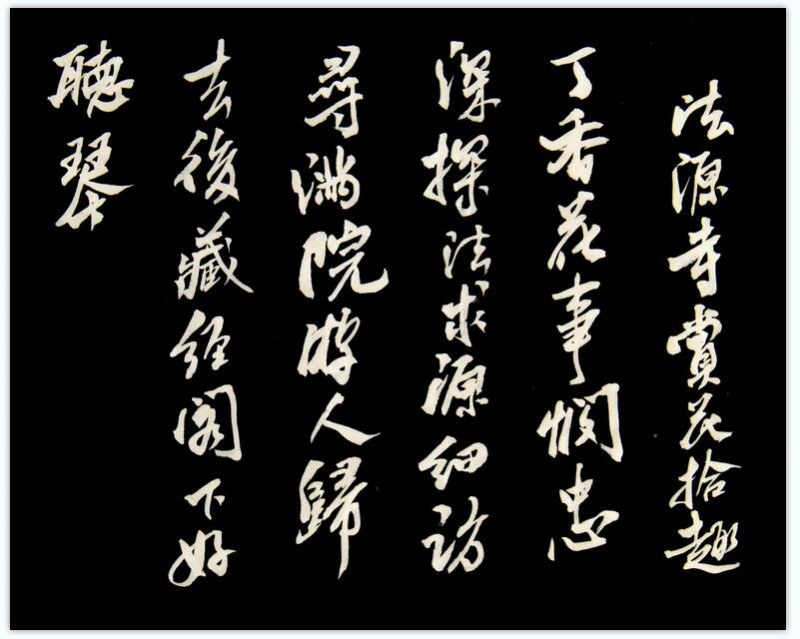 法源寺賞花拾趣
丁香花事憫忠
深探法求源細訪
尋满院游人歸
去後藏經阁下好
聽琴